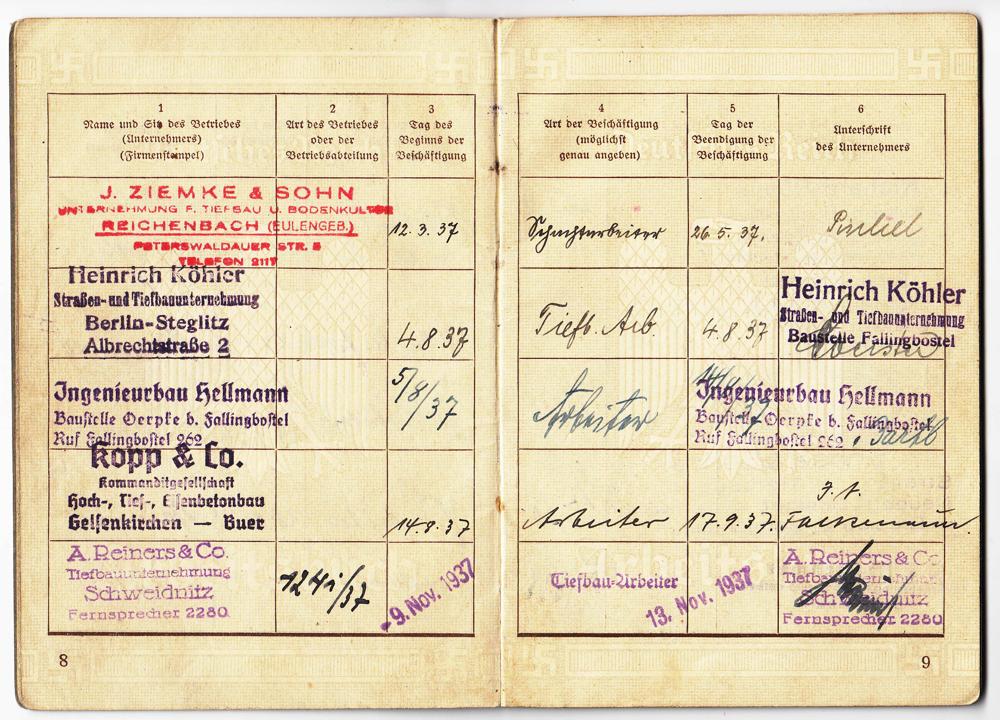 1
Name und Sitz des Betriebes
(Unternehmers)
(Firmenstempel)
2
Art des Betriebes
oder der
Betriebsabteilung
3
Tag des
Beginns der
Beschäftigung
J. ZIEMKE & SOHN
UNTERNEHMUNG F. TIEFBAU U. BODENKULTUR
REICHENBACH (EULENGEB.)
PETERSWALDAUER STR. 5
TELEFON 2117
12.3.37
Heinrich Köhler
Straßen- und Tiefbauunternehmung
Berlin-Steglitz
Albrechtstraße 2
4.8.37
Ingenieurbau Hellmann
Baustelle Oerpke b. Fallingbostel
Ruf Fallingbostel 262
5/8/37
Kopp & Co.
Kommanditgesellschaft
Hoch-, Tief-, Eisenbetonbau
Gelsenkirchen — Buer
14.9.37
A. Reiners & Co.
Tiefbauunternehmung
Schweidnitz
Fernsprecher 2280.
124i/37
-9. Nov. 1937
8
4
Art der Beschäftigung
(möglichst
genau angeben)
5
Tag der
Beendigung der
Beschäftigung
6
Unterschrift
des Unternehmers
Schachtarbeiter
26.5.37.
Tiefb. Arb.
4.8.37
Heinrich Köhler
Straßen- und Tiefbauunternehmung
Baustelle Fallingbostel
Arbeiter
Ingenieurbau Hellmann
Baustelle Oerpke b. Fallingbostel
Ruf Fallingbostel 262
Arbeiter
17.9.37.
Tiefbau-Arbeiter
13. Nov. 1937
A. Reiners & Co.
Tiefbauunternehmung
Schweidnitz
Fernsprecher 2280
9